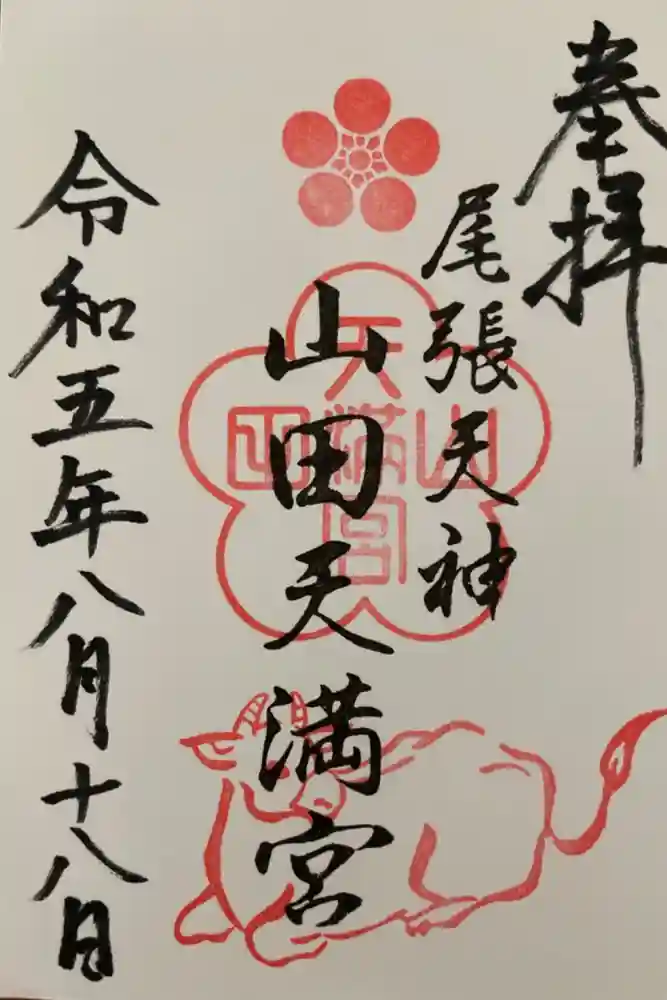 奉拝
尾張天神
山田天満宮
山田天満宮
令和五年八月十八日